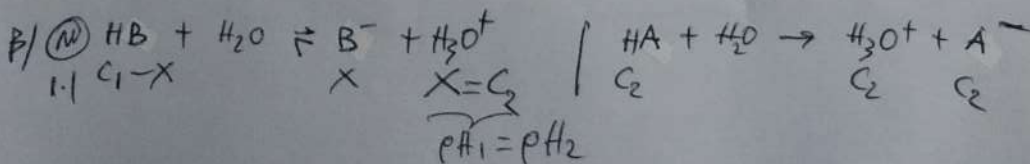 B/ (M) HB + H₂O ⇌ B⁻ + H₃O⁺ | HA + H₂O → H₃O⁺ + A⁻
1.1 C₁-X X X=C₂ C₂ C₂ C₂
pH₁=pH₂